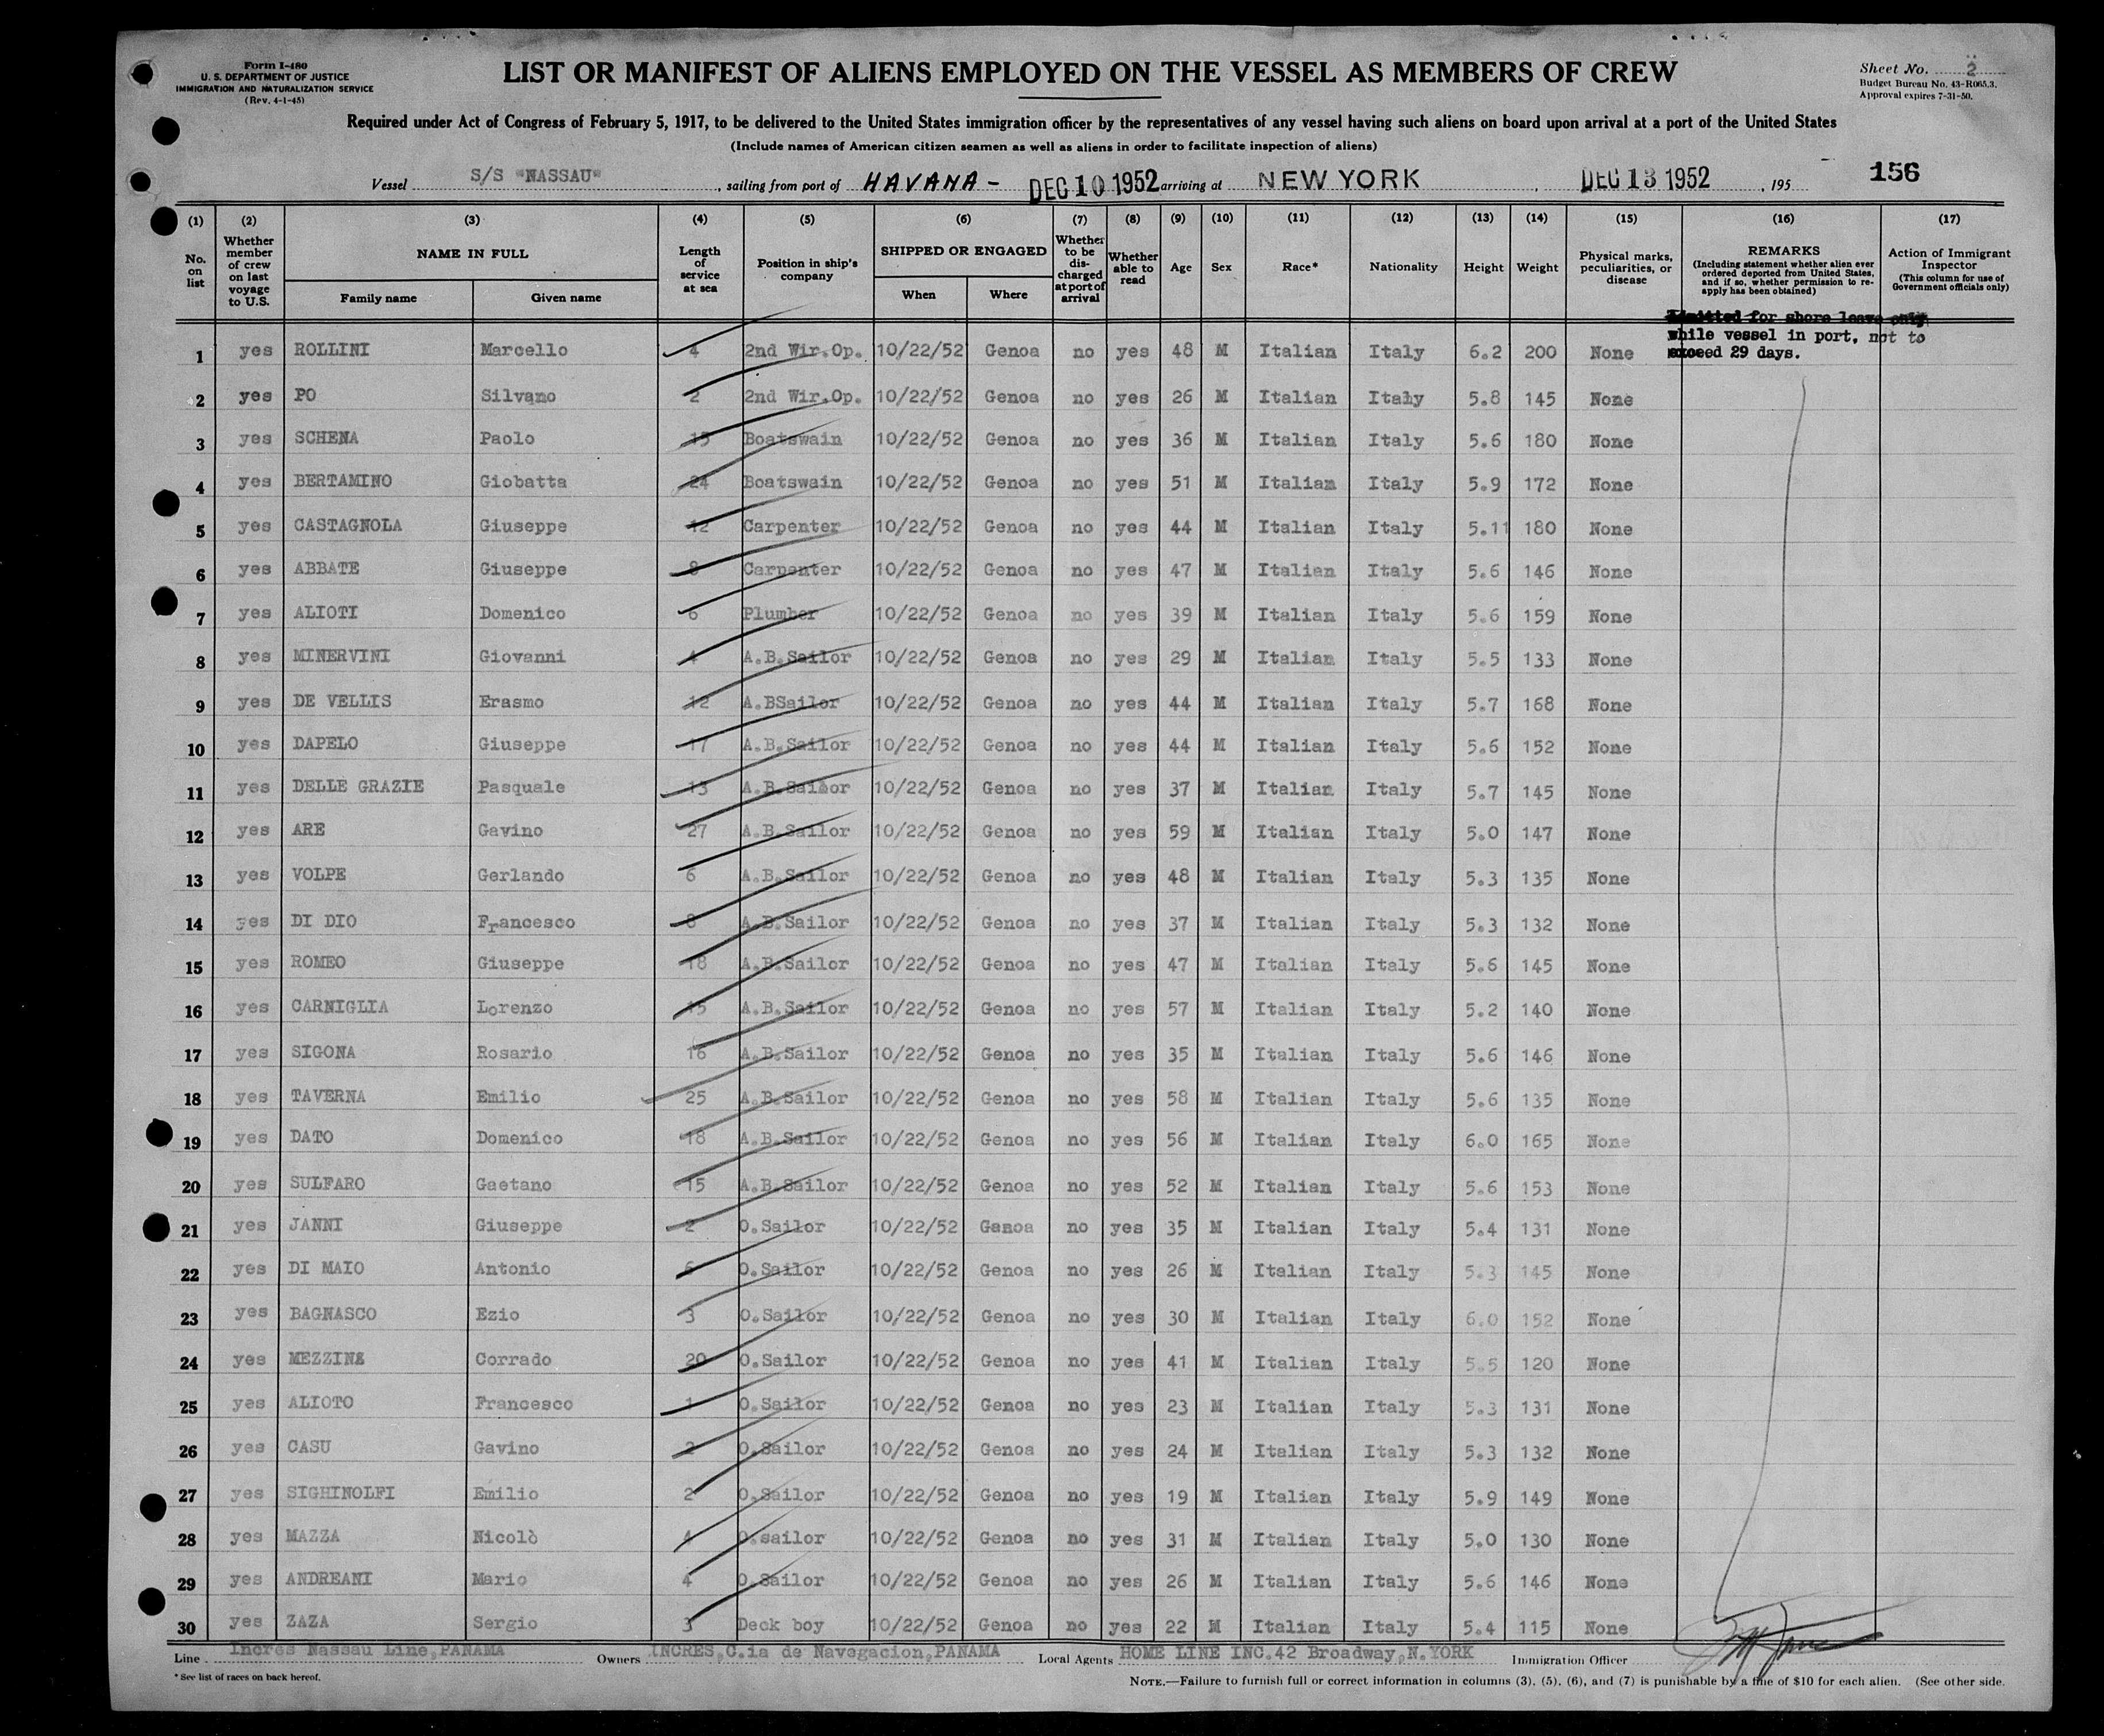 Form I-480
U. S. DEPARTMENT OF JUSTICE
IMMIGRATION AND NATURALIZATION SERVICE
(Rev. 4-1-45)
LIST OR MANIFEST OF ALIENS EMPLOYED ON THE VESSEL AS MEMBERS OF CREW
Sheet No. 2
Budget Bureau No. 43-R065.3.
Approval expires 7-31-50.
Required under Act of Congress of February 5, 1917, to be delivered to the United States immigration officer by the representatives of any vessel having such aliens on board upon arrival at a port of the United States
(Include names of American citizen seamen as well as aliens in order to facilitate inspection of aliens)
Vessel S/S "NASSAU", sailing from port of HAVANA - DEC 10 1952 arriving at NEW YORK, DEC 13 1952, 195 156
(1) (2) (3) (4) (5) (6) (7) (8) (9) (10) (11) (12) (13) (14) (15) (16) (17)
No. on list
Whether member of crew on last voyage to U.S.
NAME IN FULL
Family name
Given name
Length of service at sea
Position in ship's company
SHIPPED OR ENGAGED
When
Where
Whether to be discharged at port of arrival
Whether able to read
Age
Sex
Race*
Nationality
Height
Weight
Physical marks, peculiarities, or disease
REMARKS
(Including statement whether alien ever ordered deported from United States, and if so, whether permission to re-apply has been obtained)
Action of Immigrant Inspector
(This column for use of Government officials only)
Admitted for shore leave only
while vessel in port, not to
exceed 29 days.
1 yes ROLLINI Marcello 4 2nd Wir.Op. 10/22/52 Genoa no yes 48 M Italian Italy 6.2 200 None
2 yes PO Silvano 2 2nd Wir.Op. 10/22/52 Genoa no yes 26 M Italian Italy 5.8 145 None
3 yes SCHENA Paolo 15 Boatswain 10/22/52 Genoa no yes 36 M Italian Italy 5.6 180 None
4 yes BERTAMINO Giobatta 24 Boatswain 10/22/52 Genoa no yes 51 M Italian Italy 5.9 172 None
5 yes CASTAGNOLA Giuseppe 12 Carpenter 10/22/52 Genoa no yes 44 M Italian Italy 5.11 180 None
6 yes ABBATE Giuseppe 8 Carpenter 10/22/52 Genoa no yes 47 M Italian Italy 5.6 146 None
7 yes ALIOTI Domenico 6 Plumber 10/22/52 Genoa no yes 39 M Italian Italy 5.6 159 None
8 yes MINERVINI Giovanni 4 A.B.Sailor 10/22/52 Genoa no yes 29 M Italian Italy 5.5 133 None
9 yes DE VELLIS Erasmo 12 A.BSailor 10/22/52 Genoa no yes 44 M Italian Italy 5.7 168 None
10 yes DAPELO Giuseppe 17 A.B.Sailor 10/22/52 Genoa no yes 44 M Italian Italy 5.6 152 None
11 yes DELLE GRAZIE Pasquale 13 A.B.Sailor 10/22/52 Genoa no yes 37 M Italian Italy 5.7 145 None
12 yes ARE Gavino 27 A.B.Sailor 10/22/52 Genoa no yes 59 M Italian Italy 5.0 147 None
13 yes VOLPE Gerlando 6 A.B.Sailor 10/22/52 Genoa no yes 48 M Italian Italy 5.3 135 None
14 yes DI DIO Francesco 8 A.B.Sailor 10/22/52 Genoa no yes 37 M Italian Italy 5.3 132 None
15 yes ROMEO Giuseppe 18 A.B.Sailor 10/22/52 Genoa no yes 47 M Italian Italy 5.6 145 None
16 yes CARNIGLIA Lorenzo 15 A.B.Sailor 10/22/52 Genoa no yes 57 M Italian Italy 5.2 140 None
17 yes SIGONA Rosario 16 A.B.Sailor 10/22/52 Genoa no yes 35 M Italian Italy 5.6 146 None
18 yes TAVERNA Emilio 25 A.B.Sailor 10/22/52 Genoa no yes 58 M Italian Italy 5.6 135 None
19 yes DATO Domenico 18 A.B.Sailor 10/22/52 Genoa no yes 56 M Italian Italy 6.0 165 None
20 yes SULFARO Gaetano 15 A.B.Sailor 10/22/52 Genoa no yes 52 M Italian Italy 5.6 153 None
21 yes JANNI Giuseppe 2 O.Sailor 10/22/52 Genoa no yes 35 M Italian Italy 5.4 131 None
22 yes DI MAIO Antonio 6 O.Sailor 10/22/52 Genoa no yes 26 M Italian Italy 5.3 145 None
23 yes BAGNASCO Ezio 3 O.Sailor 10/22/52 Genoa no yes 30 M Italian Italy 6.0 152 None
24 yes MEZZINA Corrado 20 O.Sailor 10/22/52 Genoa no yes 41 M Italian Italy 5.5 120 None
25 yes ALIOTO Francesco 1 O.Sailor 10/22/52 Genoa no yes 23 M Italian Italy 5.3 131 None
26 yes CASU Gavino 2 O.Sailor 10/22/52 Genoa no yes 24 M Italian Italy 5.3 132 None
27 yes SIGHINOLFI Emilio 2 O.Sailor 10/22/52 Genoa no yes 19 M Italian Italy 5.9 149 None
28 yes MAZZA Nicolò 4 O.sailor 10/22/52 Genoa no yes 31 M Italian Italy 5.0 130 None
29 yes ANDREANI Mario 4 O.Sailor 10/22/52 Genoa no yes 26 M Italian Italy 5.6 146 None
30 yes ZAZA Sergio 3 Deck boy 10/22/52 Genoa no yes 22 M Italian Italy 5.4 115 None
Line Incres Nassau Line,PANAMA Owners INCRES,C.ia de Navegacion,PANAMA Local Agents HOME LINE INC.42 Broadway,N.YORK Immigration Officer
* See list of races on back hereof.
NOTE.—Failure to furnish full or correct information in columns (3), (5), (6), and (7) is punishable by a fine of $10 for each alien. (See other side.